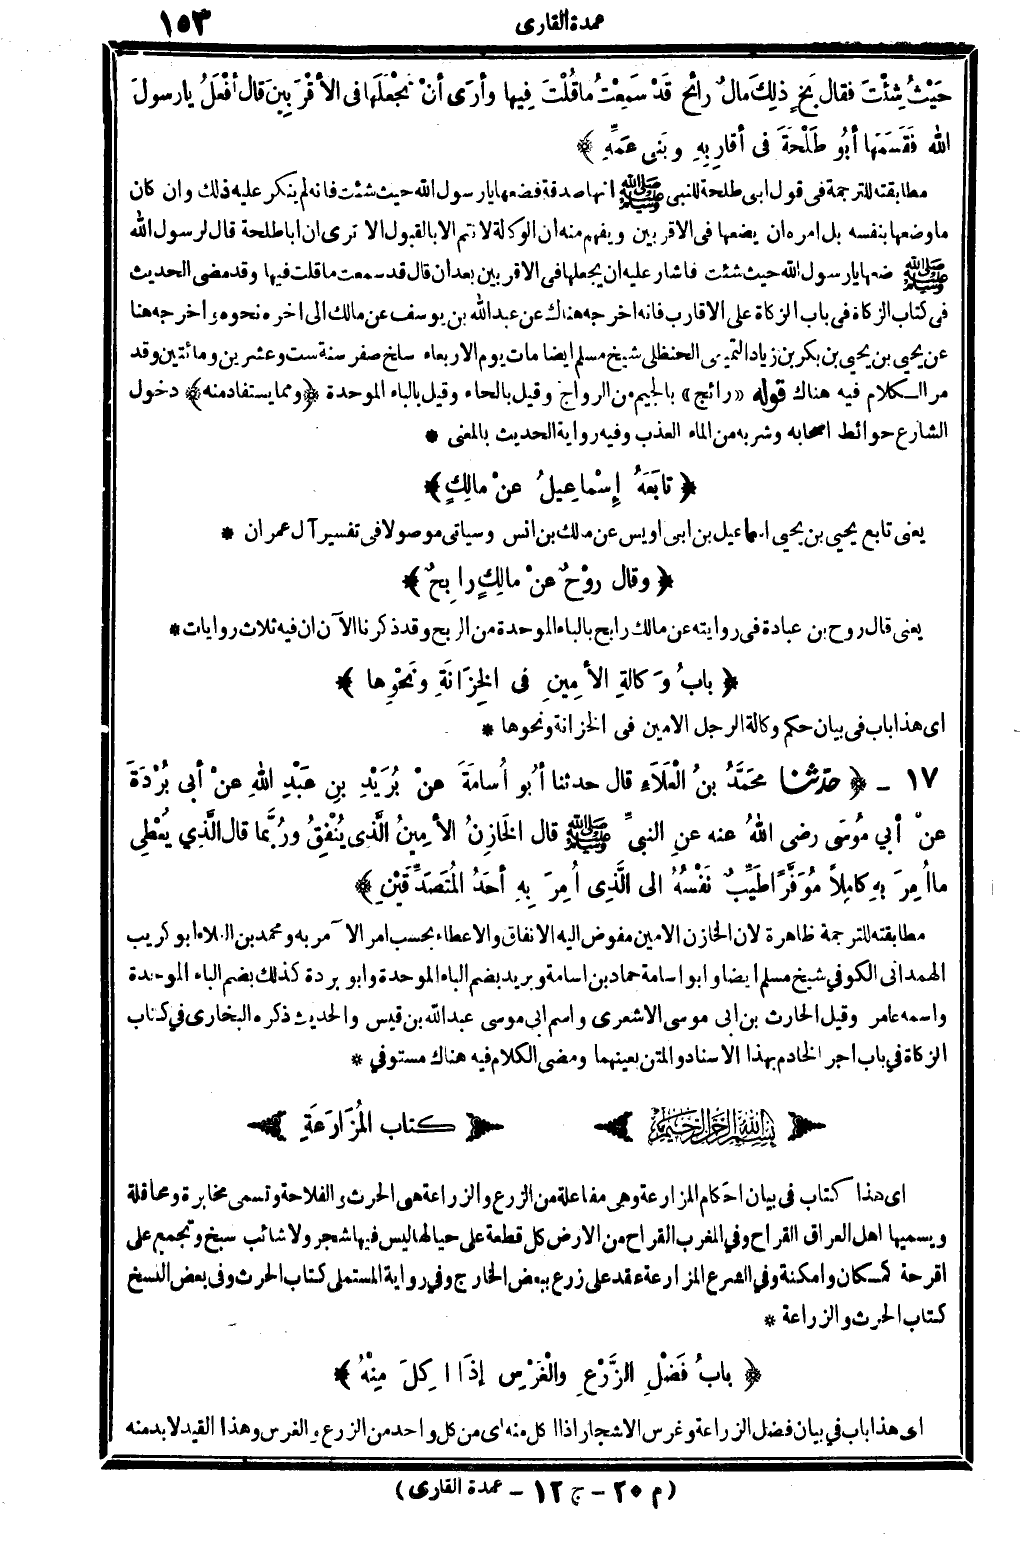 عمدة القارى ١٥٣
حَيْثُ شِئْتَ فقال بَخٍ ذلِكَ مَالٌ رائِحٌ قَدْ سَمِعْتُ ما قُلْتَ فِيها وأرَى أنْ تَجْعَلَهَا فى الأقْرَبِينَ قال أفْعَلُ يا رسولَ
الله فَقَسَمَهَا أبُو طَلْحَةَ فى أقارِبِهِ وبَنِى عَمِّهِ ﴾
مطابقته للترجمة فى قول ابى طلحة للنبى ﷺ انها صدقة فضعها يارسول الله حيث شئت فانه لم ينكر عليه ذلك وان كان
ماوضعها بنفسه بل امره ان يضعها فى الاقربين ويفهم منه أن الوكالة لا تتم الا بالقبول الا ترى ان أبا طلحة قال لرسول الله
ﷺ ضعها يارسول الله حيث شئت فاشار عليه ان يجعلها فى الاقربين بعد ان قال قد سمعت ماقلت فيها وقد مضى الحديث
فى كتاب الزكاة فى باب الزكاة على الاقارب فانه اخرجه هناك عن عبدالله بن يوسف عن مالك الى اخره نحوه وأخرجه هنا
عن يحيى بن يحيى بن بكر بن زياد التميمى الحنظلى شيخ مسلم ايضا مات يوم الاربعاء سلخ صفر سنة ست وعشرين ومائتين وقد
مر الكلام فيه هناك قوله «رائج» بالجيم من الرواج وقيل بالحاء وقيل بالباء الموحدة ﴿ومما يستفاد منه﴾ دخول
الشارع حوائط اصحابه وشربه من الماء العذب وفيه رواية الحديث بالمعنى *
﴿ تابَعَهُ إسْماعِيلُ عنْ مالِكٍ ﴾
يعنى تابع يحيى بن يحيى اسماعيل بن ابى اويس عن مالك بن انس وسياتى موصولا فى تفسير آل عمران *
﴿ وقال روْحٌ عنْ مالِكٍ رابِحٌ ﴾
يعنى قال روح بن عبادة فى روايته عن مالك رابح بالباء الموحدة من الربح وقد ذكرنا الآن ان فيه ثلاث روايات *
﴿ بابُ وَكالةِ الأمِينِ فى الخِزَانَةِ ونَحْوِها ﴾
اى هذا باب فى بيان حكم وكالة الرجل الامين فى الخزانة ونحوها *
١٧ - ﴿ حدّثنا محَمَّدُ بنُ الْعَلَاءِ قال حدثنا أبُو أُسامَةَ عنْ بُرَيْدِ بنِ عَبْدِ اللهِ عنْ أبى بُرْدَةَ
عنْ أبي مُوسَى رضى اللهُ عنه عنِ النبىِّ ﷺ قال الخَازِنُ الأمِينُ الَّذِى يُنْفِقُ ورُبَّما قال الَّذِي يُعْطِي
ما أُمِرَ بهِ كامِلاً مُوَفَّرًا طَيِّبٌ نَفْسُهُ الى الَّذِى أُمِرَ بِهِ أحَدُ المُتَصَدِّقَيْنِ ﴾
مطابقته للترجمة ظاهرة لان الخازن الامين مفوض اليه الانفاق والاعطاء بحسب امر الآمر به ومحمد بن العلاء ابو كريب
الهمدانى الكوفي شيخ مسلم ايضا وابو اسامة حماد بن اسامة وبريد بضم الباء الموحدة وابو بردة كذلك بضم الباء الموحدة
واسمه عامر وقيل الحارث بن ابى موسى الاشعرى واسم ابى موسى عبدالله بن قيس والحديث ذكره البخارى في كتاب
الزكاة في باب اجر الخادم بهذا الاسناد والمتن بعينهما ومضى الكلام فيه هناك مستوفي *
بسم الله الرحمن الرحيم كتاب المُزَارَعَةِ
اى هذا كتاب فى بيان احكام المزارعة وهى مفاعلة من الزرع والزراعة هى الحرث والفلاحة وتسمى مخابرة ومحاقلة
ويسميها اهل العراق القراح وفي المغرب القراح من الارض كل قطعة على حيالها ليس فيها شجر ولا شائب سبخ وتجمع على
اقرحة كمكان وامكنة وفي الشرع المزارعة عقد على زرع ببعض الخارج وفي رواية المستملى كتاب الحرث وفى بعض النسخ
كتاب الحرث والزراعة *
﴿ بابُ فَضْلِ الزَّرْعِ والْغَرْسِ إذَا أُكِلَ مِنْهُ ﴾
اى هذا باب في بيان فضل الزراعة وغرس الاشجار اذا اكل منه اى من كل واحد من الزرع والغرس وهذا القيد لابد منه
(م ٢٠ - ج ١٢ - عمدة القارى)